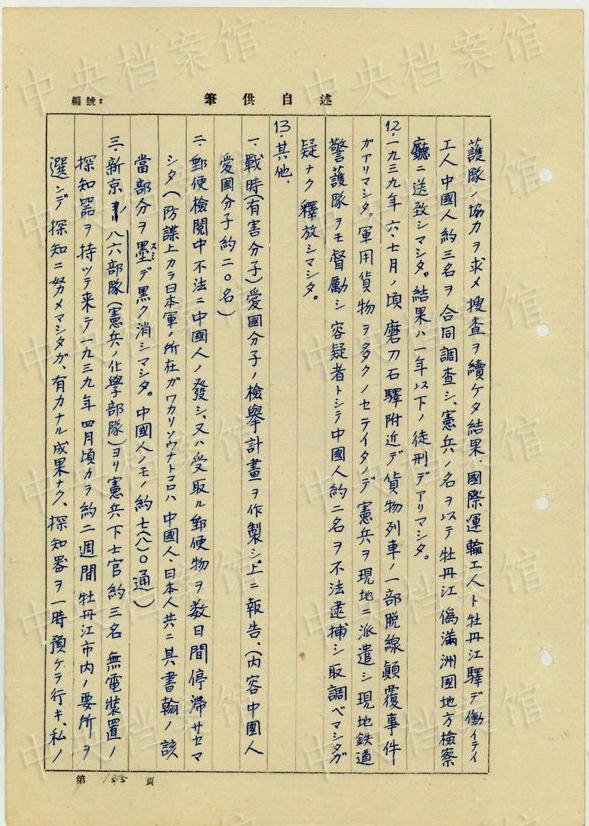 編號:
述自供筆
護隊ノ協力ヲ求メ捜査ヲ續ケタ結果、國際運輸工人ト牡丹江驛デ働イテイ
工人中國人約三名ヲ合同調査シ、憲兵ノ名ヲ以テ牡丹江偽滿洲國地方検察
廳ニ送致シマシタ。結果ハ一年以下ノ徒刑デアリマシタ。
12.一九三九年六、七月ノ頃磨刀石驛附近デ貨物列車ノ一部脱線顛覆事件
ガアリマシタ。軍用貨物ヲ多クノセテイタノデ憲兵ヲ現地ニ派遣シ現地鉄道
警護隊ヲモ督勵シ容疑者トシテ中國人約二名ヲ不法逮捕シ取調ベマシタガ
疑ナク釋放シマシタ。
13.其他.
一.戰時(有害分子)愛國分子ノ檢舉計畫ヲ作製シ上ニ報告、(内容中國人
愛國分子約二〇名)
二.郵便檢閲中不法ニ中國人ノ發シ、又ハ受取ル郵便物ヲ数日間停滯サセマ
シタ(防諜上カラ日本軍ノ所在ガワカリソウナトコロハ中國人、日本人共ニ其書翰ノ該
當部分ヲ墨スミデ黒ク消シマシタ。中國人ノモノ約七(八)〇通)
三.新京八六部隊(憲兵ノ化學部隊)ヨリ憲兵下士官約三名無電装置ノ
探知器ヲ持ッテ来テ一九三九年四月頃カラ約二週間牡丹江市内ノ要所ヲ
選ンデ探知ニ努メマシタガ、有力ナル成果ナク、探知器ヲ一時預ケテ行キ、私ノ
第155頁
中央档案馆